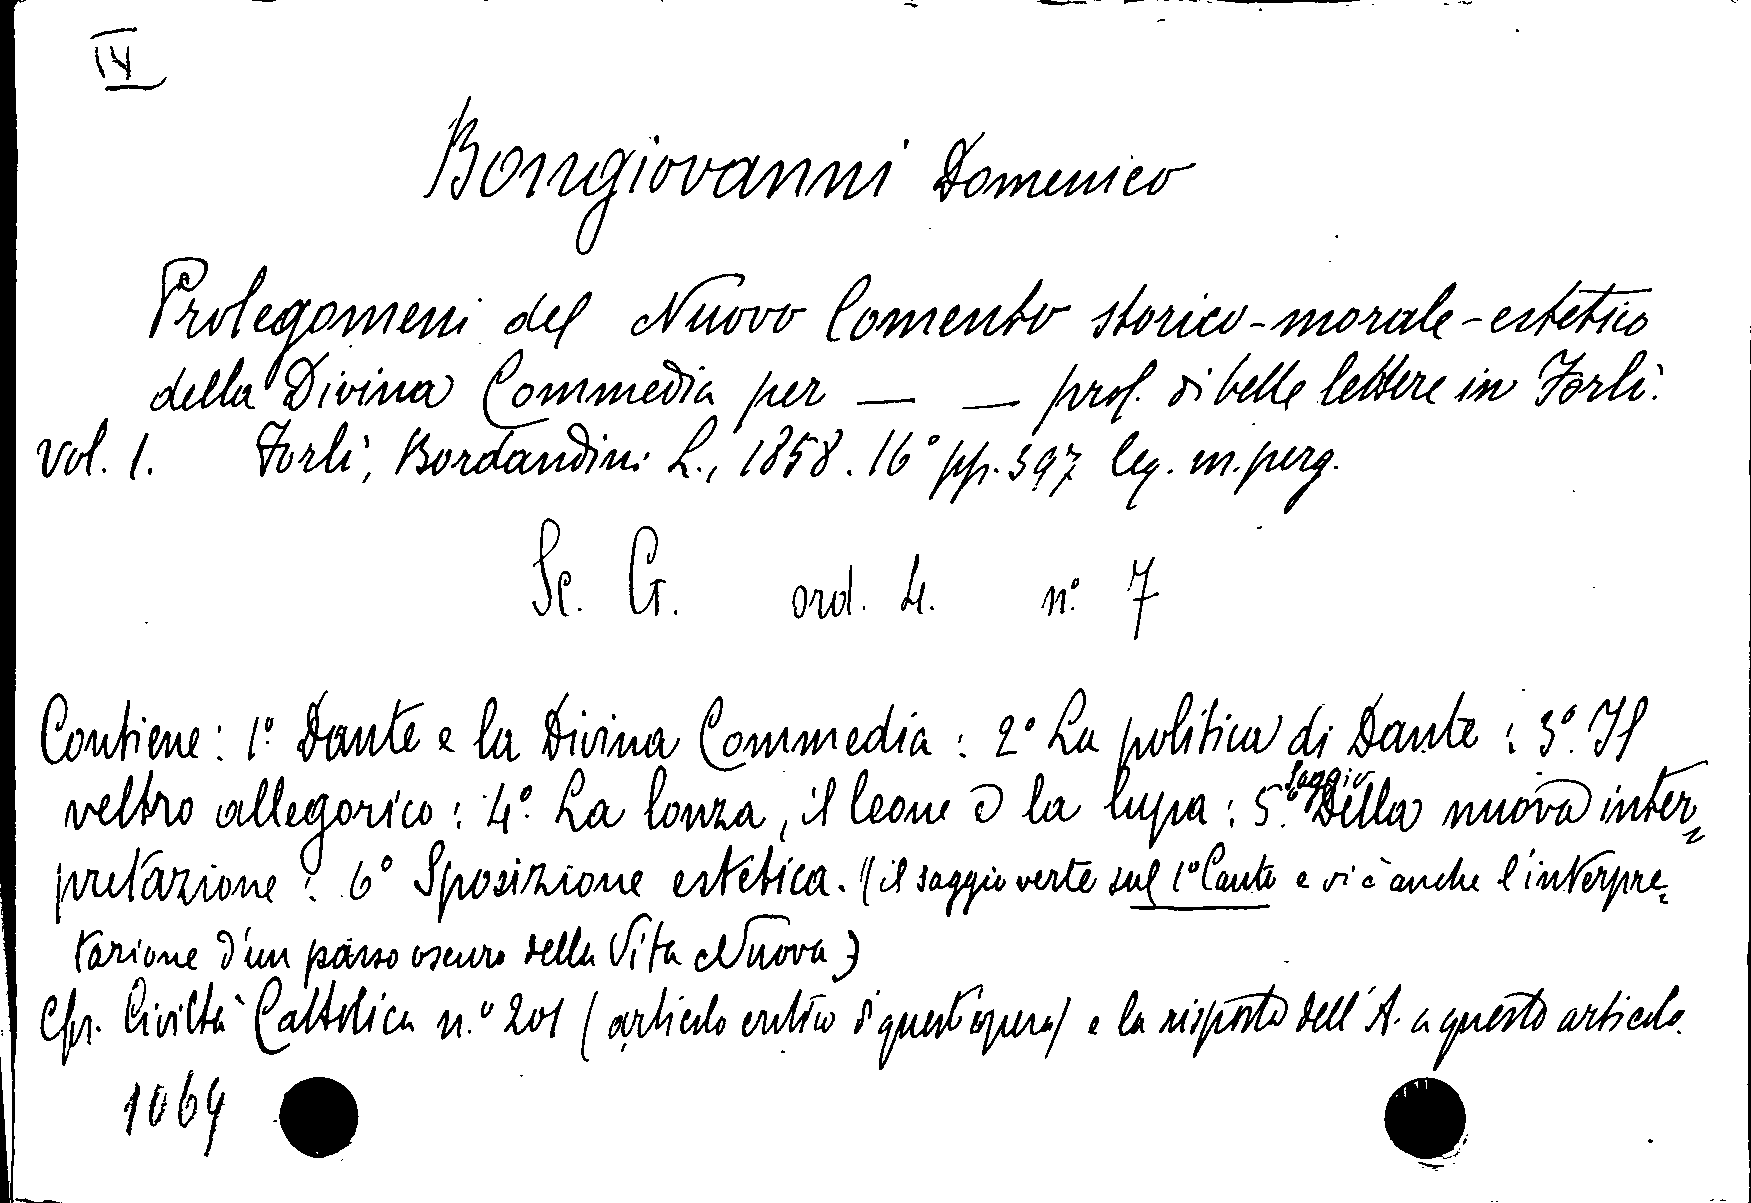 IV
Bongiovanni Domenico
Prolegomeni del Nuovo Comento storico-morale-estetico
della Divina Commedia per — — prof. di belle lettere in Forlì.
Vol. 1. Forlì, Bordandini L., 1858. 16° pp. 397 leg. m. perg.
Sc. G. ord. 4. n° 7
Contiene: 1° Dante e la Divina Commedia: 2° La politica di Dante: 3° Il
veltro allegorico: 4° La lonza, il leone e la lupa: 5° Saggio della nuova inter=
pretazione: 6° Sposizione estetica. (il saggio verte sul 1° Canto e vi è anche l'interpre=
tazione d'un passo oscuro della Vita Nuova)
Cfr. Civiltà Cattolica n.° 201 (articolo critico di quest'opera) e la risposta dell'A. a questo articolo.
1064